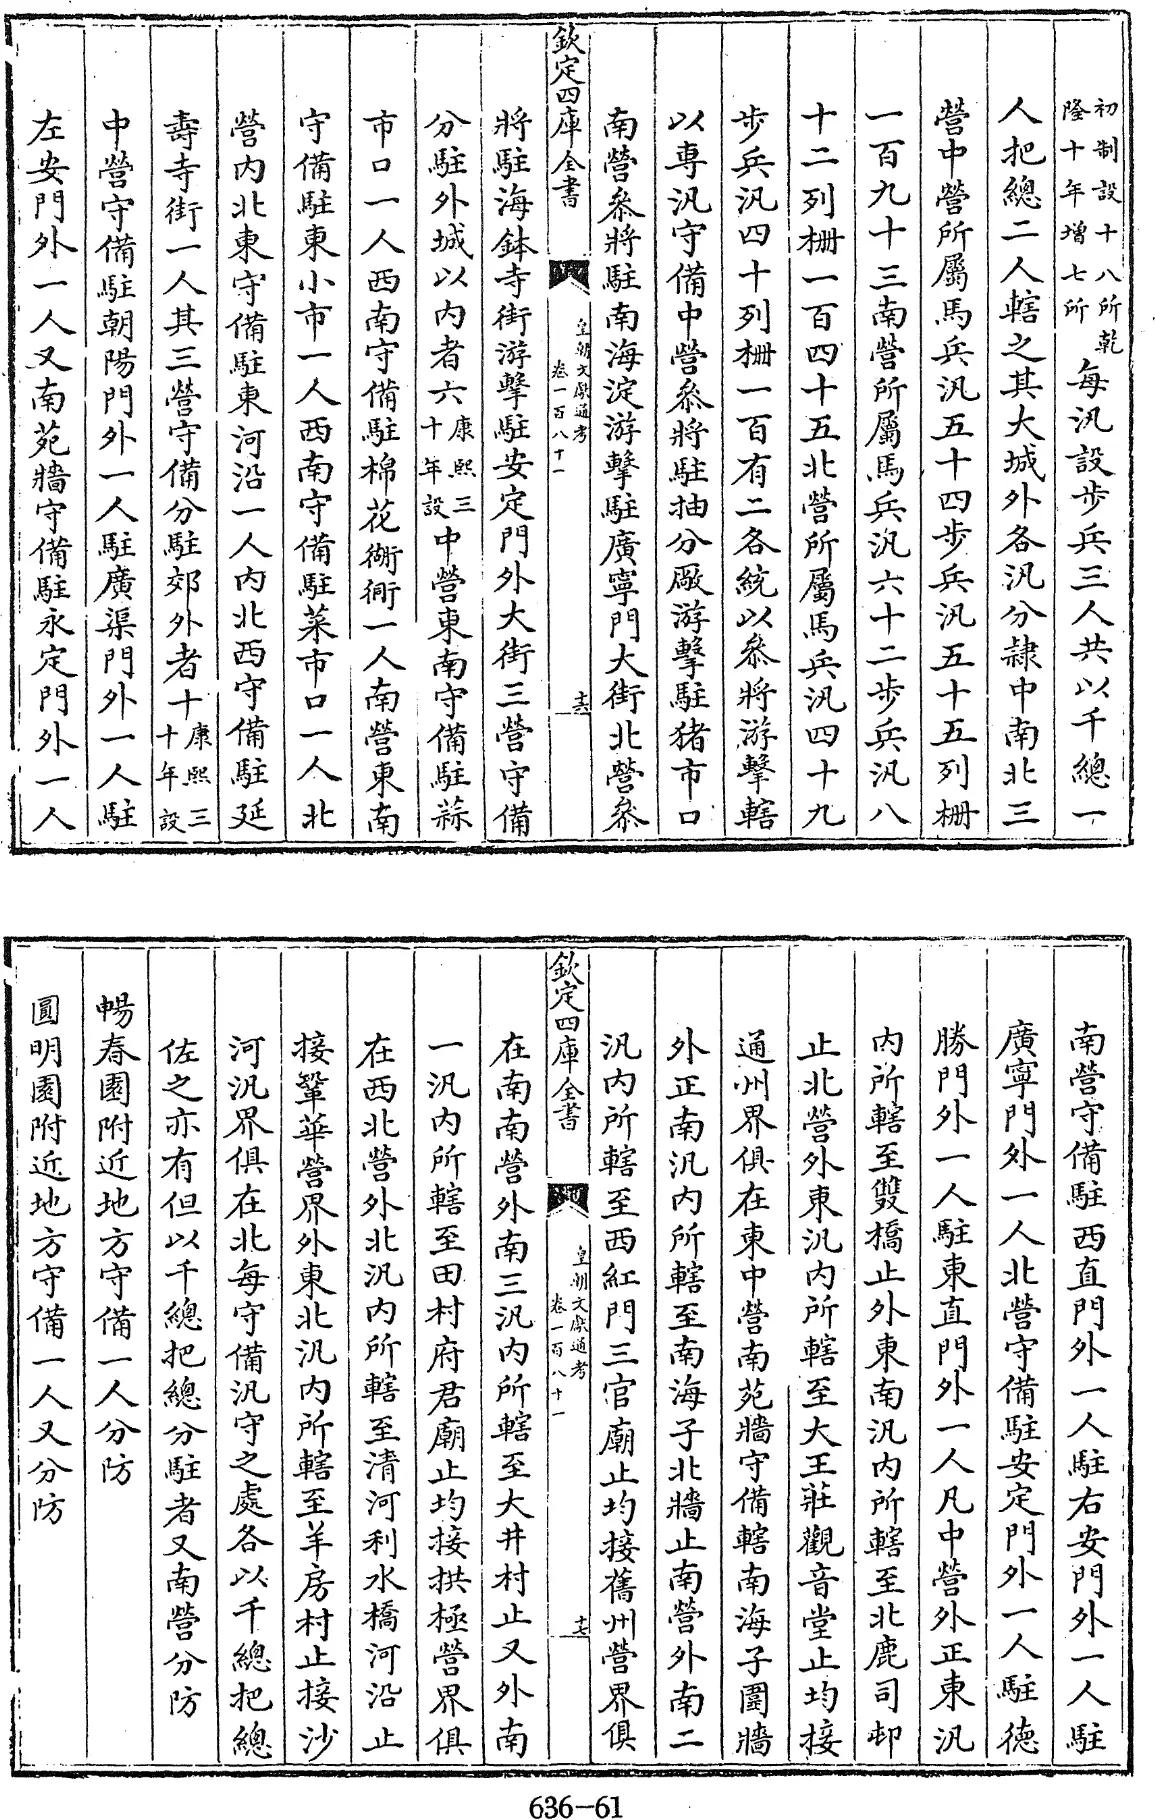 初制設十八所乾
隆十年增七所
每汛設步兵三人共以千總一
人把總二人轄之其大城外各汛分隷中南北三
營中營所屬馬兵汛五十四步兵汛五十五列柵
一百九十三南營所屬馬兵汛六十二步兵汛八
十二列柵一百四十五北營所屬馬兵汛四十九
步兵汛四十列柵一百有二各統以叅將游擊轄
以專汛守備中營叅將駐抽分厰游擊駐猪市口
南營叅將駐南海淀游擊駐廣寧門大街北營叅
欽定四庫全書
皇朝文獻通考
卷一百八十一
十六
將駐海鉢寺街游擊駐安定門外大街三營守備
分駐外城以内者六
康熙三
十年設
中營東南守備駐蒜
市口一人西南守備駐棉花衚衕一人南營東南
守備駐東小市一人西南守備駐菜市口一人北
營内北東守備駐東河沿一人内北西守備駐延
壽寺街一人其三營守備分駐郊外者十
康熙三
十年設
中營守備駐朝陽門外一人駐廣渠門外一人駐
左安門外一人又南苑牆守備駐永定門外一人
南營守備駐西直門外一人駐右安門外一人駐
廣寧門外一人北營守備駐安定門外一人駐德
勝門外一人駐東直門外一人凡中營外正東汛
内所轄至雙橋止外東南汛内所轄至北鹿司邨
止北營外東汛内所轄至大王莊觀音堂止均接
通州界俱在東中營南苑牆守備轄南海子圍牆
外正南汛内所轄至南海子北牆止南營外南二
汛内所轄至西紅門三官廟止均接舊州營界俱
欽定四庫全書
皇朝文獻通考
卷一百八十一
十七
在南南營外南三汛内所轄至大井村止又外南
一汛内所轄至田村府君廟止均接拱極營界俱
在西北營外北汛内所轄至清河利水橋河沿止
接鞏華營界外東北汛内所轄至羊房村止接沙
河汛界俱在北每守備汛守之處各以千總把總
佐之亦有但以千總把總分駐者又南營分防
暢春園附近地方守備一人分防
圓明園附近地方守備一人又分防
636-61